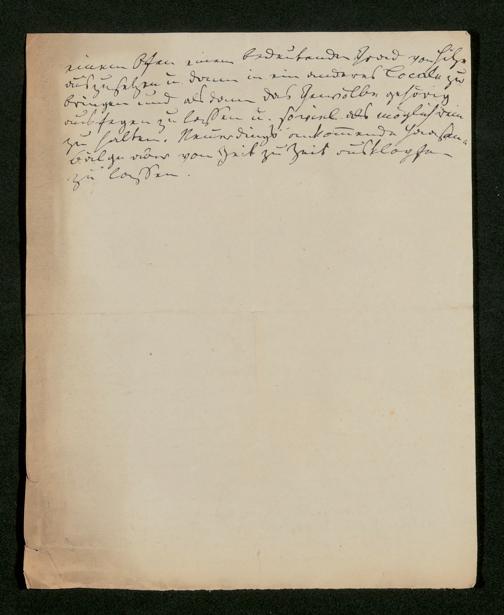 einem Ofen einem bedeutenden Grad von Hitze
auszusetzen u. dann in ein anderes Locale zu
bringen und alsdann das Gewölbe gehörig
ausfegen zu lassen u. soviel als möglich rein
zu halten. Neuerdings ankom̅ende Haasen-
bälge aber von Zeit zu Zeit ausklopfen
zu lassen.